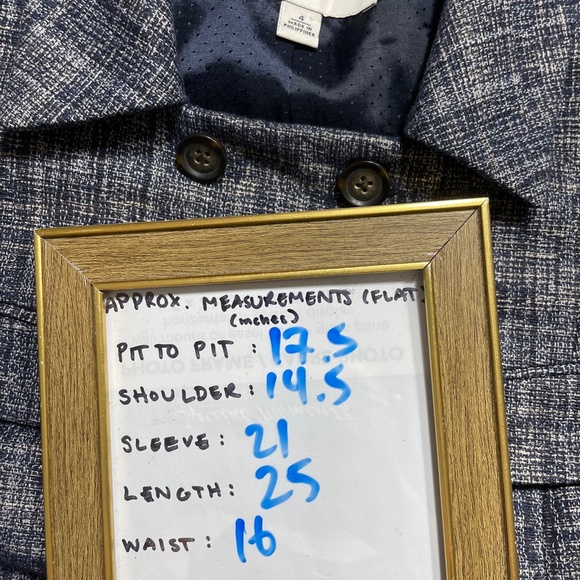 4
MADE IN
PHILIPPINES
APPROX. MEASUREMENTS (FLAT)
(inches)
PIT TO PIT : 17.5
SHOULDER: 14.5
SLEEVE: 21
LENGTH: 25
WAIST: 16